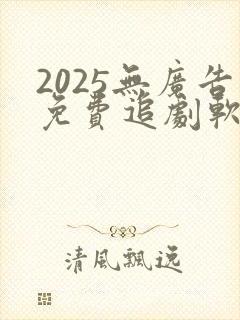 2025無廣告
免費追劇軟
清風飄逸